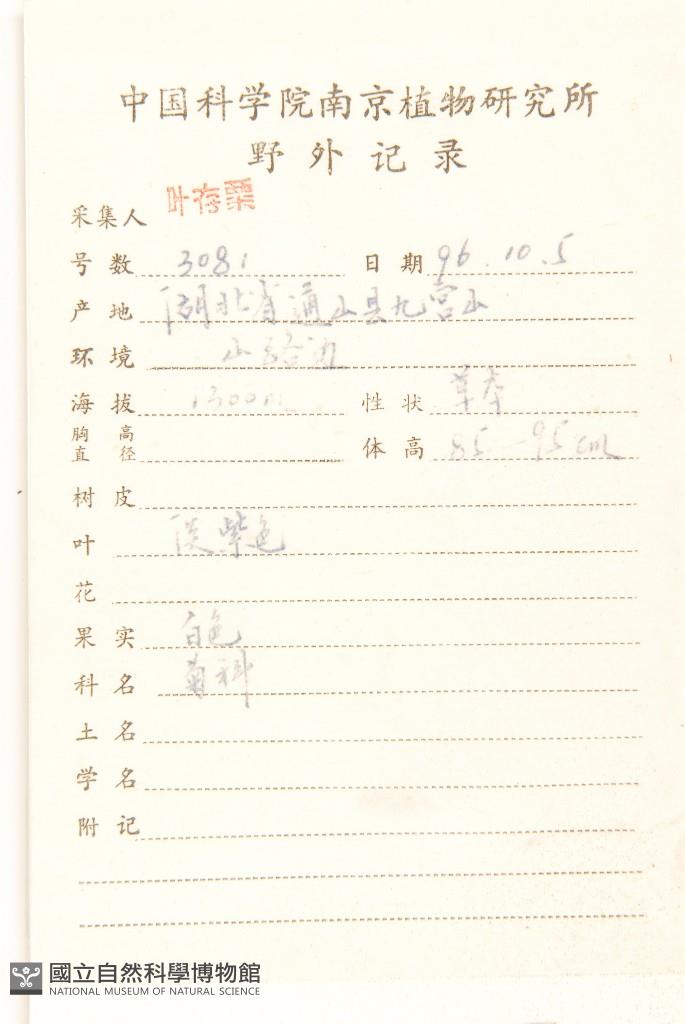 中国科学院南京植物研究所
野外记录
采集人 叶存粟
号数 3081 日期 96.10.5
产地 湖北省通山县九宫山
环境 山路边
海拔 1300m 性状 草本
胸高直径 体高 85-95cm
树皮
叶 淡紫色
花
果实 白色
科名 菊科
土名
学名
附记
國立自然科學博物館
NATIONAL MUSEUM OF NATURAL SCIENCE